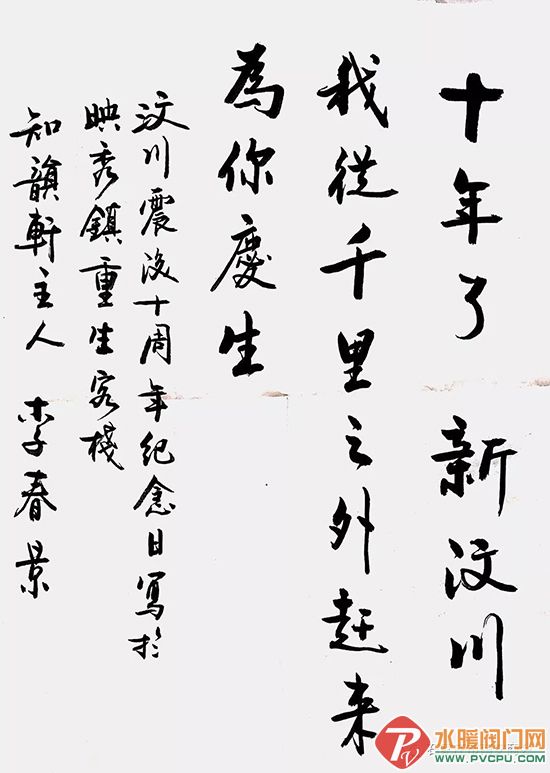 十年了　新汶川
我従千里之外赶来
為你慶生
汶川震后十周年纪念日写於
映秀鎮重生客棧
知韻軒主人　李春景
水暖阀门网
WWW.PVCPU.COM